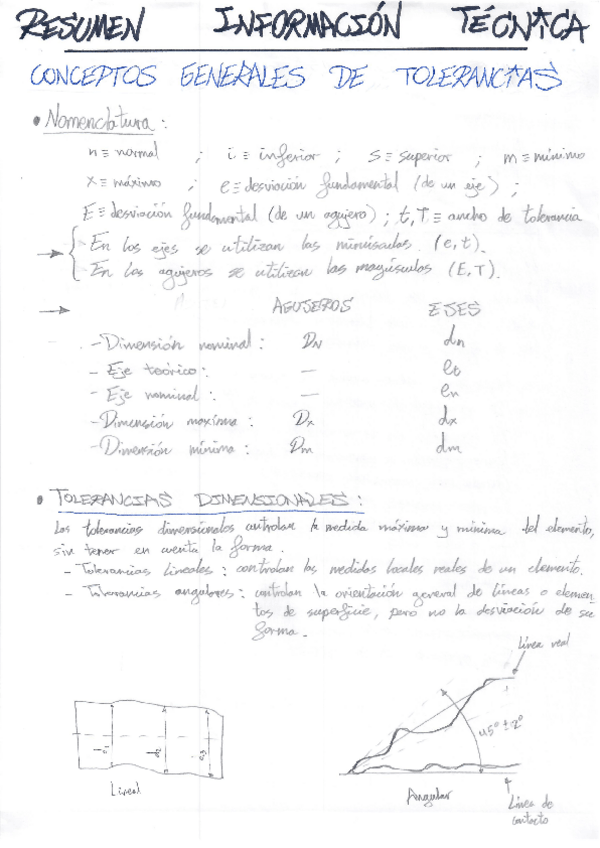 RESUMEN INFORMACIÓN TÉCNICA
CONCEPTOS GENERALES DE TOLERANCIAS
• Nomenclatura:
n ≡ normal ; i ≡ inferior ; s ≡ superior ; m ≡ mínimo
x ≡ máximo ; e ≡ desviación fundamental (de un eje) ;
E ≡ desviación fundamental (de un agujero) ; t, T ≡ ancho de tolerancia
→ { - En los ejes se utilizan las minúsculas (e, t).
- En los agujeros se utilizan las mayúsculas (E, T).
→ AGUJEROS EJES
- Dimensión nominal: DN dn
- Eje teórico: — et
- Eje nominal: — en
- Dimensión máxima: Dx dx
- Dimensión mínima: Dm dm
• TOLERANCIAS DIMENSIONALES:
Las tolerancias dimensionales controlan la medida máxima y mínima del elemento,
sin tener en cuenta la forma.
- Tolerancias lineales: controlan las medidas locales reales de un elemento.
- Tolerancias angulares: controlan la orientación general de líneas o elemen-
tos de superficie, pero no la desviación de su
forma.
Línea real
45° ± 2°
Lineal
Angular
Línea de
contacto